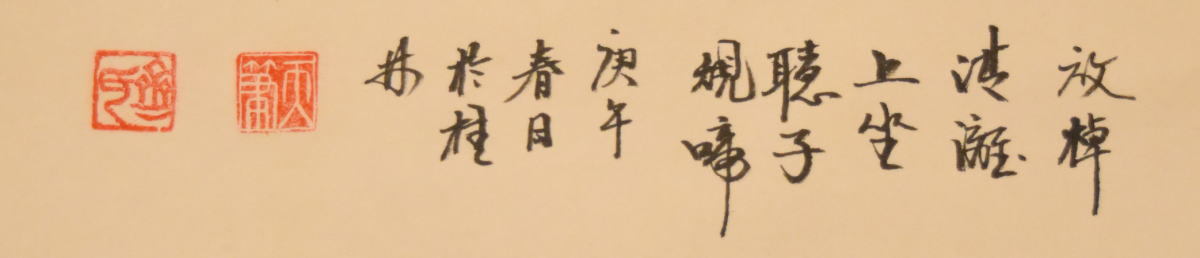 放棹
清灕
上坐
聽子
規啼
庚午
春日
於桂
林